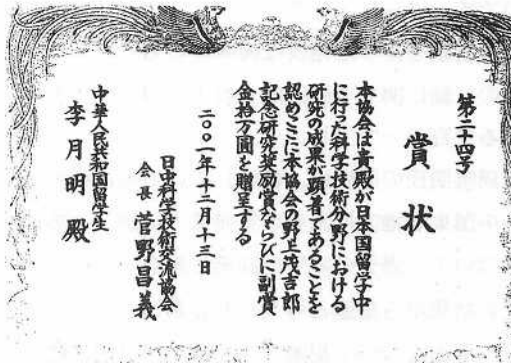 第二十四号
賞状
本協会は貴殿が日本国留学中
に行った科学技術分野における
研究の成果が顕著であることを
認めここに本協会の野上茂吉郎
記念研究奨励賞ならびに副賞
金拾万圓を贈呈する
二〇〇一年十二月十三日
日中科学技術交流協会
会長 菅野昌義
中華人民共和国留学生
李月明殿